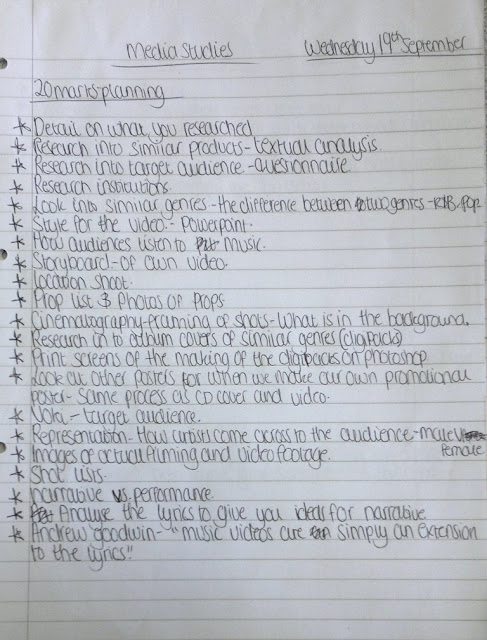 Media Studies Wednesday 19th September
20 marks planning
* Detail on what you researched
* Research into similar products - textual analysis
* Research into target audience - questionnaire
* Research institutions.
* Look into similar genres - the difference between two genres - RnB - Pop
* Style for the video - Powerpoint.
* How audiences listen to music.
* Storyboard - of own video.
* Location shoot.
* Prop list & Photos of props
* Cinematography - framing of shots - what is in the background.
* Research in to album covers of similar genres (digipacks)
* Print screens of the making of the digipacks on photoshop
* Look at other posters for when we make our own promotional
poster - same process as CD cover and video.
* - target audience.
* Representation - How artists come across to the audience - male vs
female
* Images of actual filming and video footage.
* Shot lists.
* narrative vs performance.
* Analyse the lyrics to give you ideas for narrative
* Andrew goodwin - "music videos are simply an extension
to the lyrics"